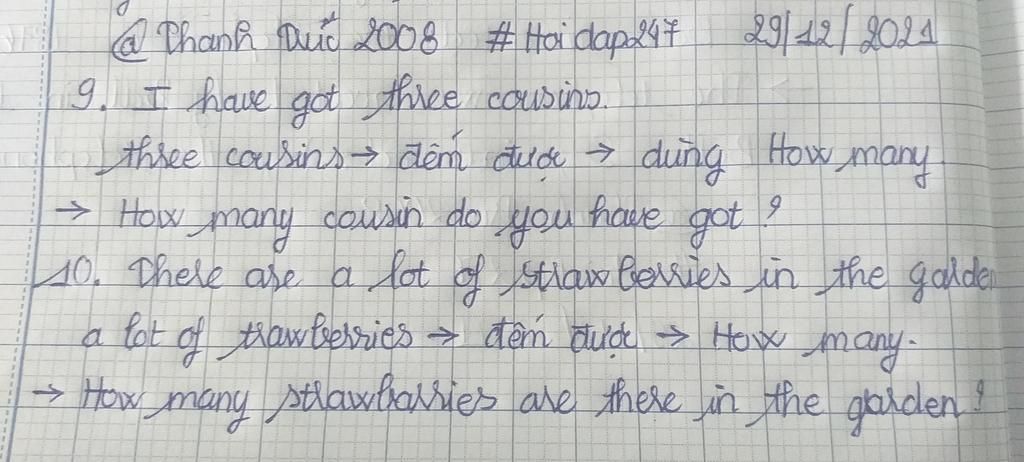 @ Thanh Đức 2008 #Hoidap247 29/12/2021
9. I have got three cousins.
three cousins → đếm được → dùng How many
→ How many cousin do you have got ?
10. There are a lot of strawberries in the garden
a lot of trawberries → đếm được → How many.
→ How many strawbarries are there in the garden ?